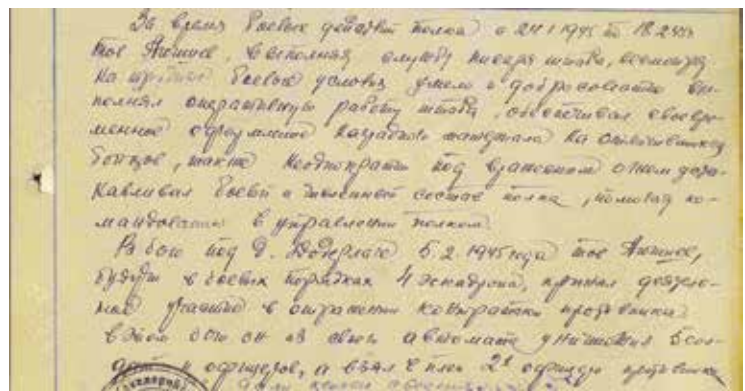 За время боевых действий полка с 24.1.1945 по 18.2.45г
тов. выполняя службу писаря штаба, несмотря
на боевые условия умело и добросовестно вы-
полнял оперативную работу штаба, обеспечивал своевре-
менное оформление наградного материала на отличившихся
бойцов, также неоднократно под вражеским огнем
боевой и численный состав полка, помогая ко-
мандованию в управлении полком.
В бою под д. 5.2.1945 года тов.
будучи в боевых порядках 4 эскадрона, принял деятель-
ное участие в отражении контратаки противника
в этом бою он из своего автомата уничтожил 5 сол-
дат и офицеров, а взял в плен 2х офицеров противника